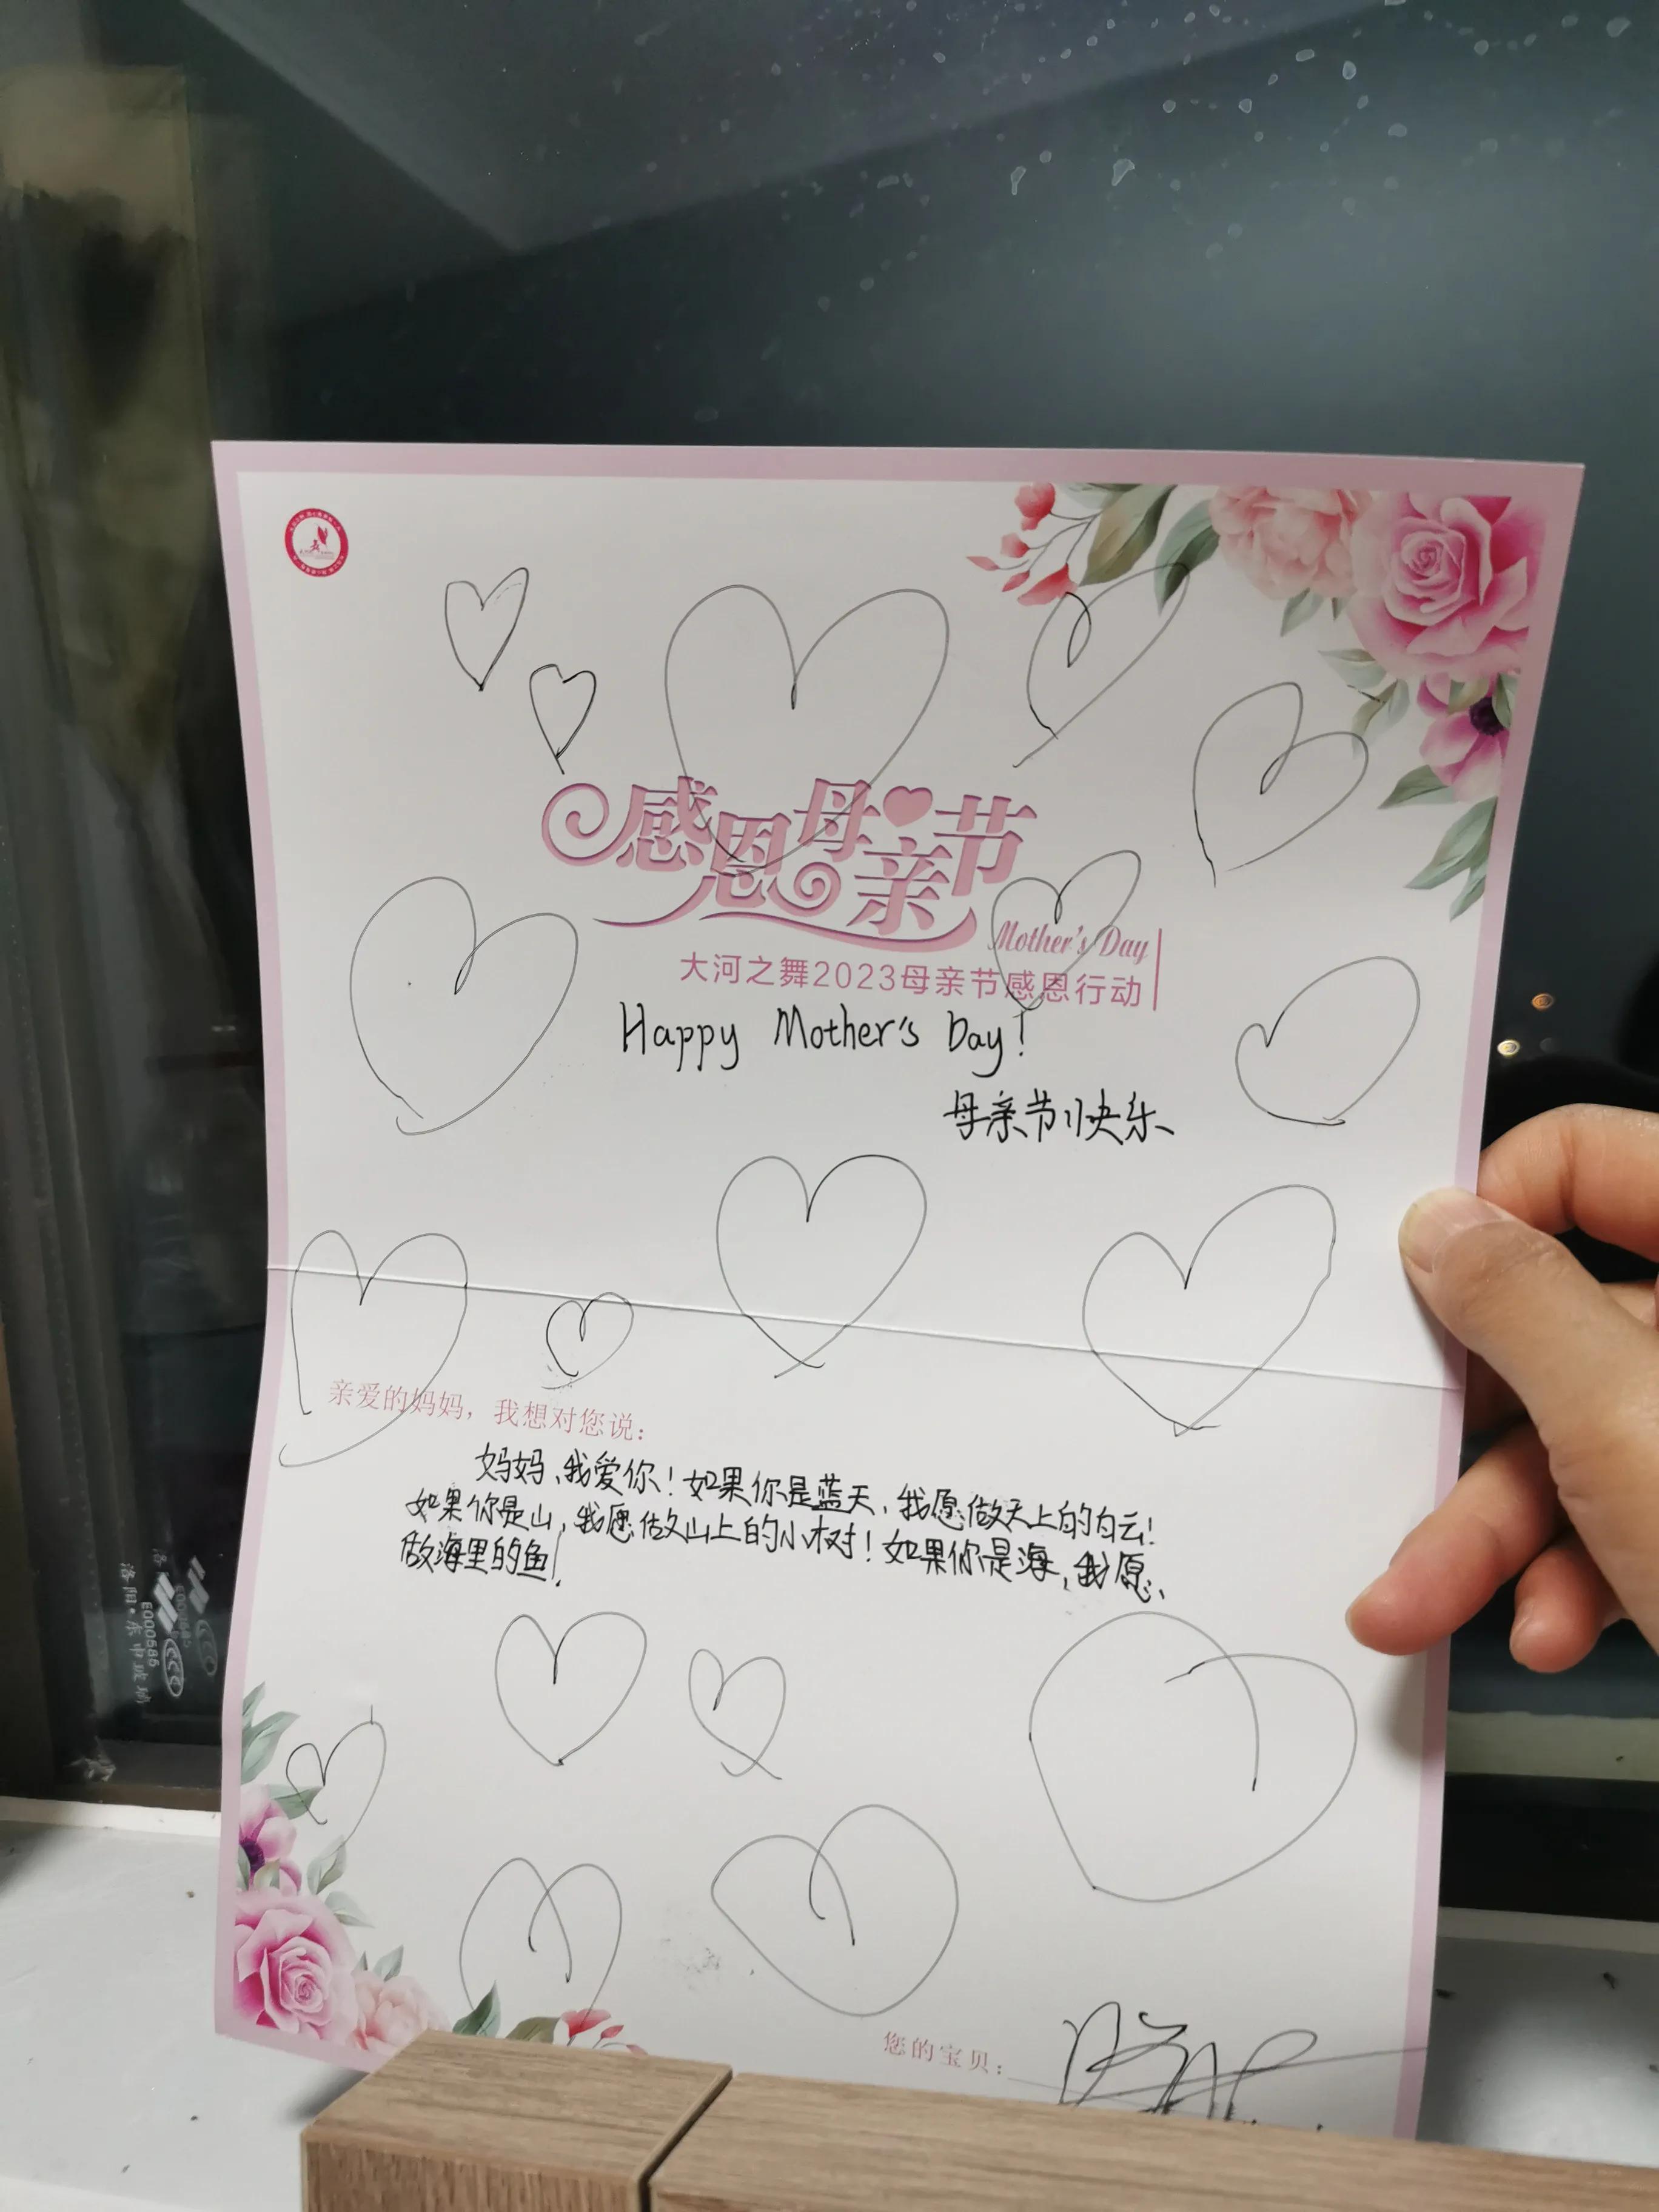 感恩母亲节
Mother's Day
大河之舞2023母亲节感恩行动
Happy Mother's Day!
母亲节快乐
亲爱的妈妈，我想对您说：
妈妈、我爱你！如果你是蓝天，我愿做天上的白云！
如果你是山，我愿做山上的小树！如果你是海，我愿
做海里的鱼！
您的宝贝：
洛阳·东
E000685
CCC